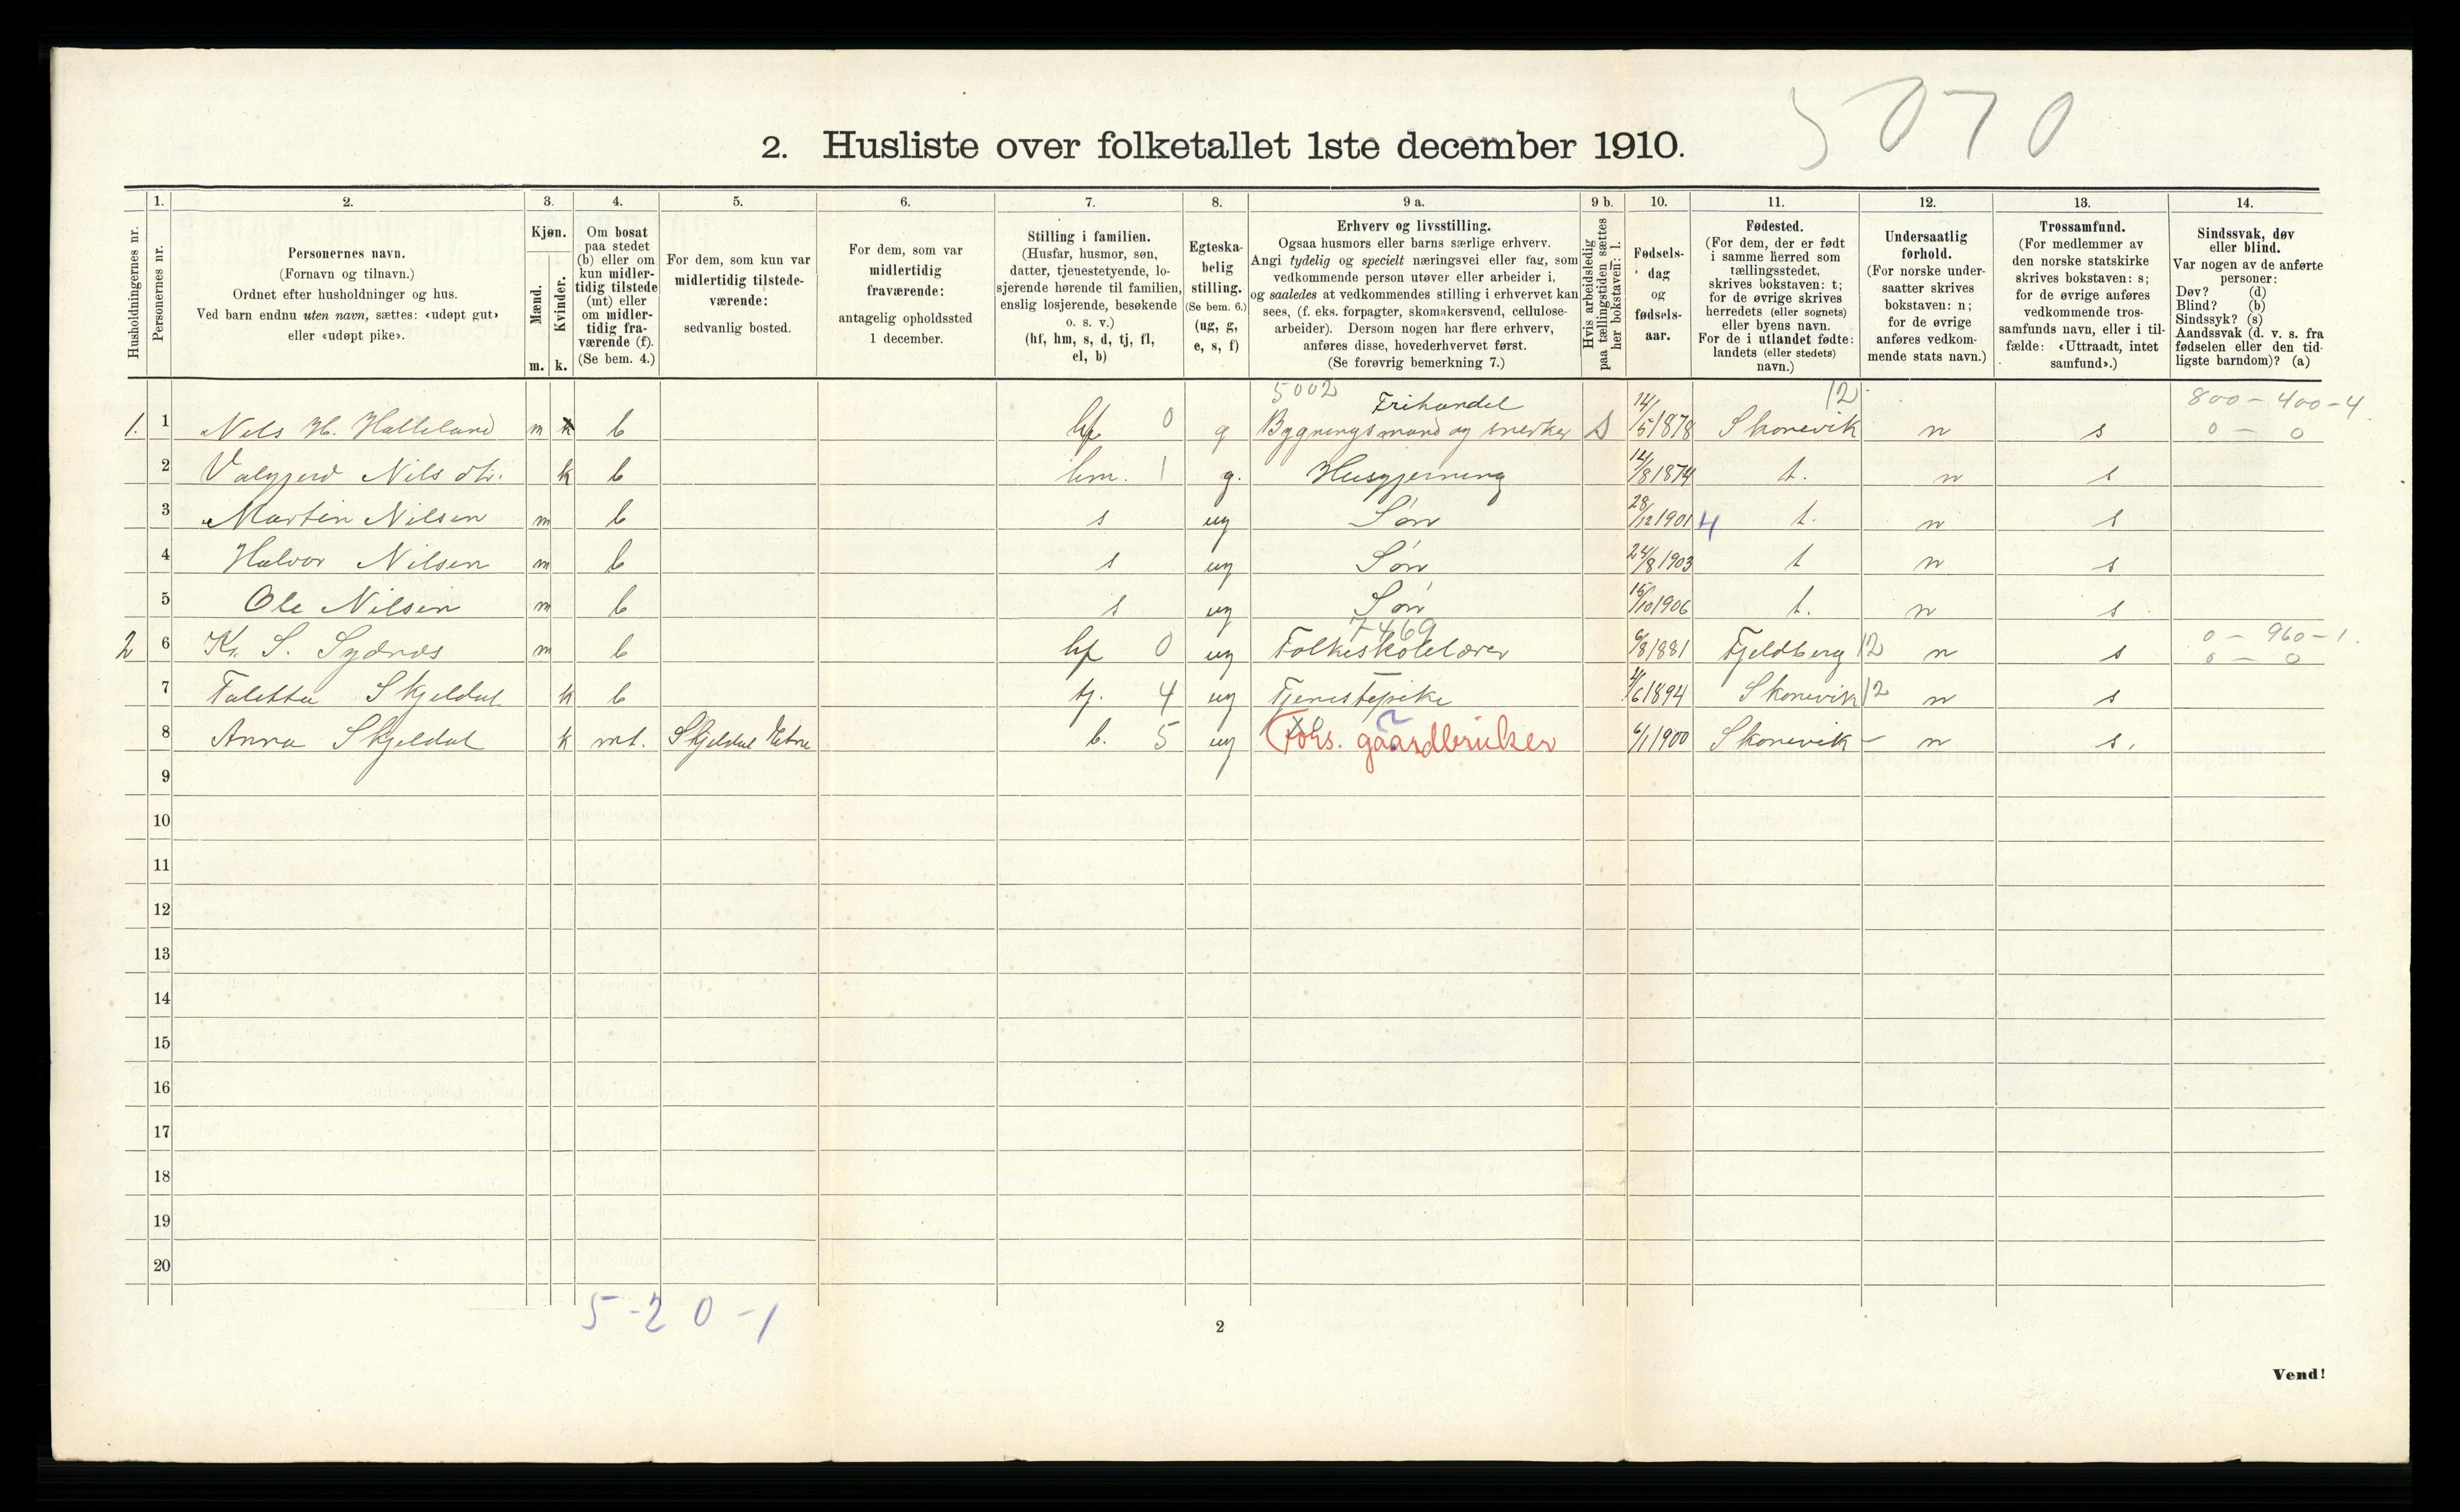 5070
2. Husliste over folketallet 1ste december 1910.
Husholdningernes nr.
1.
Personernes nr.
2.
Personernes navn.
(Fornavn og tilnavn.)
Ordnet efter husholdninger og hus.
Ved barn endnu uten navn, sættes: «udøpt gut»
eller «udøpt pike».
3.
Kjøn.
Mænd.
Kvinder.
m. k.
4.
Om bosat
paa stedet
(b) eller om
kun midler-
tidig tilstede
(mt) eller
om midler-
tidig fra-
værende (f).
(Se bem. 4.)
5.
For dem, som kun var
midlertidig tilstede-
værende:
sedvanlig bosted.
6.
For dem, som var
midlertidig
fraværende:
antagelig opholdssted
1 december.
7.
Stilling i familien.
(Husfar, husmor, søn,
datter, tjenestetyende, lo-
sjerende hørende til familien,
enslig losjerende, besøkende
o. s. v.)
(hf, hm, s, d, tj, fl,
el, b)
8.
Egteska-
belig
stilling.
(Se bem. 6.)
(ug, g,
e, s, f)
9 a.
Erhverv og livsstilling.
Ogsaa husmors eller barns særlige erhverv.
Angi tydelig og specielt næringsvei eller fag, som
vedkommende person utøver eller arbeider i,
og saaledes at vedkommendes stilling i erhvervet kan
sees, (f. eks. forpagter, skomakersvend, cellulose-
arbeider). Dersom nogen har flere erhverv,
anføres disse, hovederhvervet først.
(Se forøvrig bemerkning 7.)
9 b.
Hvis arbeidsledig
paa tællingstiden sættes
her bokstaven: l.
10.
Fødsels-
dag
og
fødsels-
aar.
11.
Fødested.
(For dem, der er født
i samme herred som
tællingsstedet,
skrives bokstaven: t;
for de øvrige skrives
herredets (eller sognets)
eller byens navn.
For de i utlandet fødte:
landets (eller stedets)
navn.)
12.
Undersaatlig
forhold.
(For norske under-
saatter skrives
bokstaven: n;
for de øvrige
anføres vedkom-
mende stats navn.)
13.
Trossamfund.
(For medlemmer av
den norske statskirke
skrives bokstaven: s;
for de øvrige anføres
vedkommende tros-
samfunds navn, eller i til-
fælde: «Uttraadt, intet
samfund».)
14.
Sindssvak, døv
eller blind.
Var nogen av de anførte
personer:
Døv? (d)
Blind? (b)
Sindssyk? (s)
Aandssvak (d. v. s. fra
fødselen eller den tid-
ligste barndom)? (a)
5002 Trihandel 12 800 - 400 - 4
1. 1 Nils H. Halleland m k b hf 0 g Bygningsmand og snedker S 14/5 1878 Skonevik n s 0 - 0
2 Valgjerd Nils dtr. k b hm. 1 g. Husgjerning 14/8 1874 t. n s
3 Martin Nilsen m b s ug Søn 28/12 1901 4 t. n s
4 Halvor Nilsen m b s ug Søn 24/8 1903 t n s
5 Ole Nilsen m b s ug Søn 15/10 1906 t. n s
7469 0 - 960 - 1.
2 6 Kr. S. Sydnæs m b hf 0 ug Folkeskolelærer 6/8 1881 Fjeldberg 12 n s 0 - 0
7 Taletta Skjeldal k b tj. 4 ug Tjenestepike 4/6 1894 Skonevik 12 n s
8 Anna Skjeldal k mt. Skjeldal Etne b. 5 ug Fors. gaardbruker 6/1 1900 Skonevik - n s.
9
10
11
12
13
14
15
16
17
18
19
20
5 - 2 0 - 1
2
Vend!